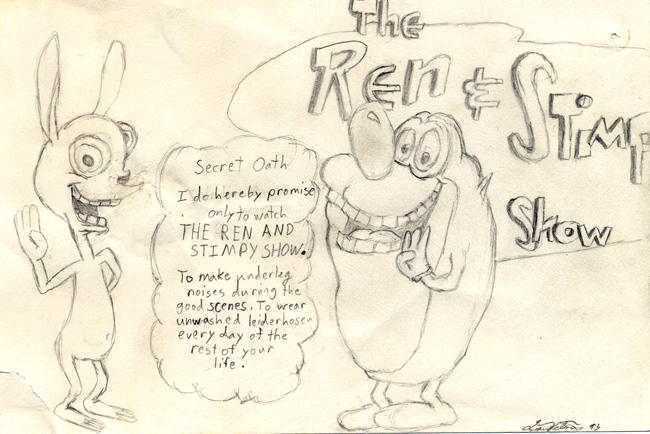 The
Ren &
Stimp
Show
Secret Oath
I do hereby promise
only to watch
THE REN AND
STIMPY SHOW.
To make underleg
noises during the
good scenes. To wear
unwashed leiderhosen
every day of the
rest of your
life.
93